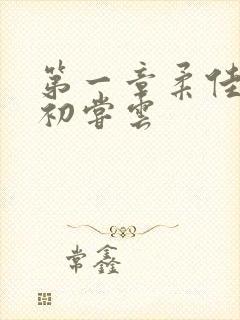 第一章柔佳
初尝雲
常鑫